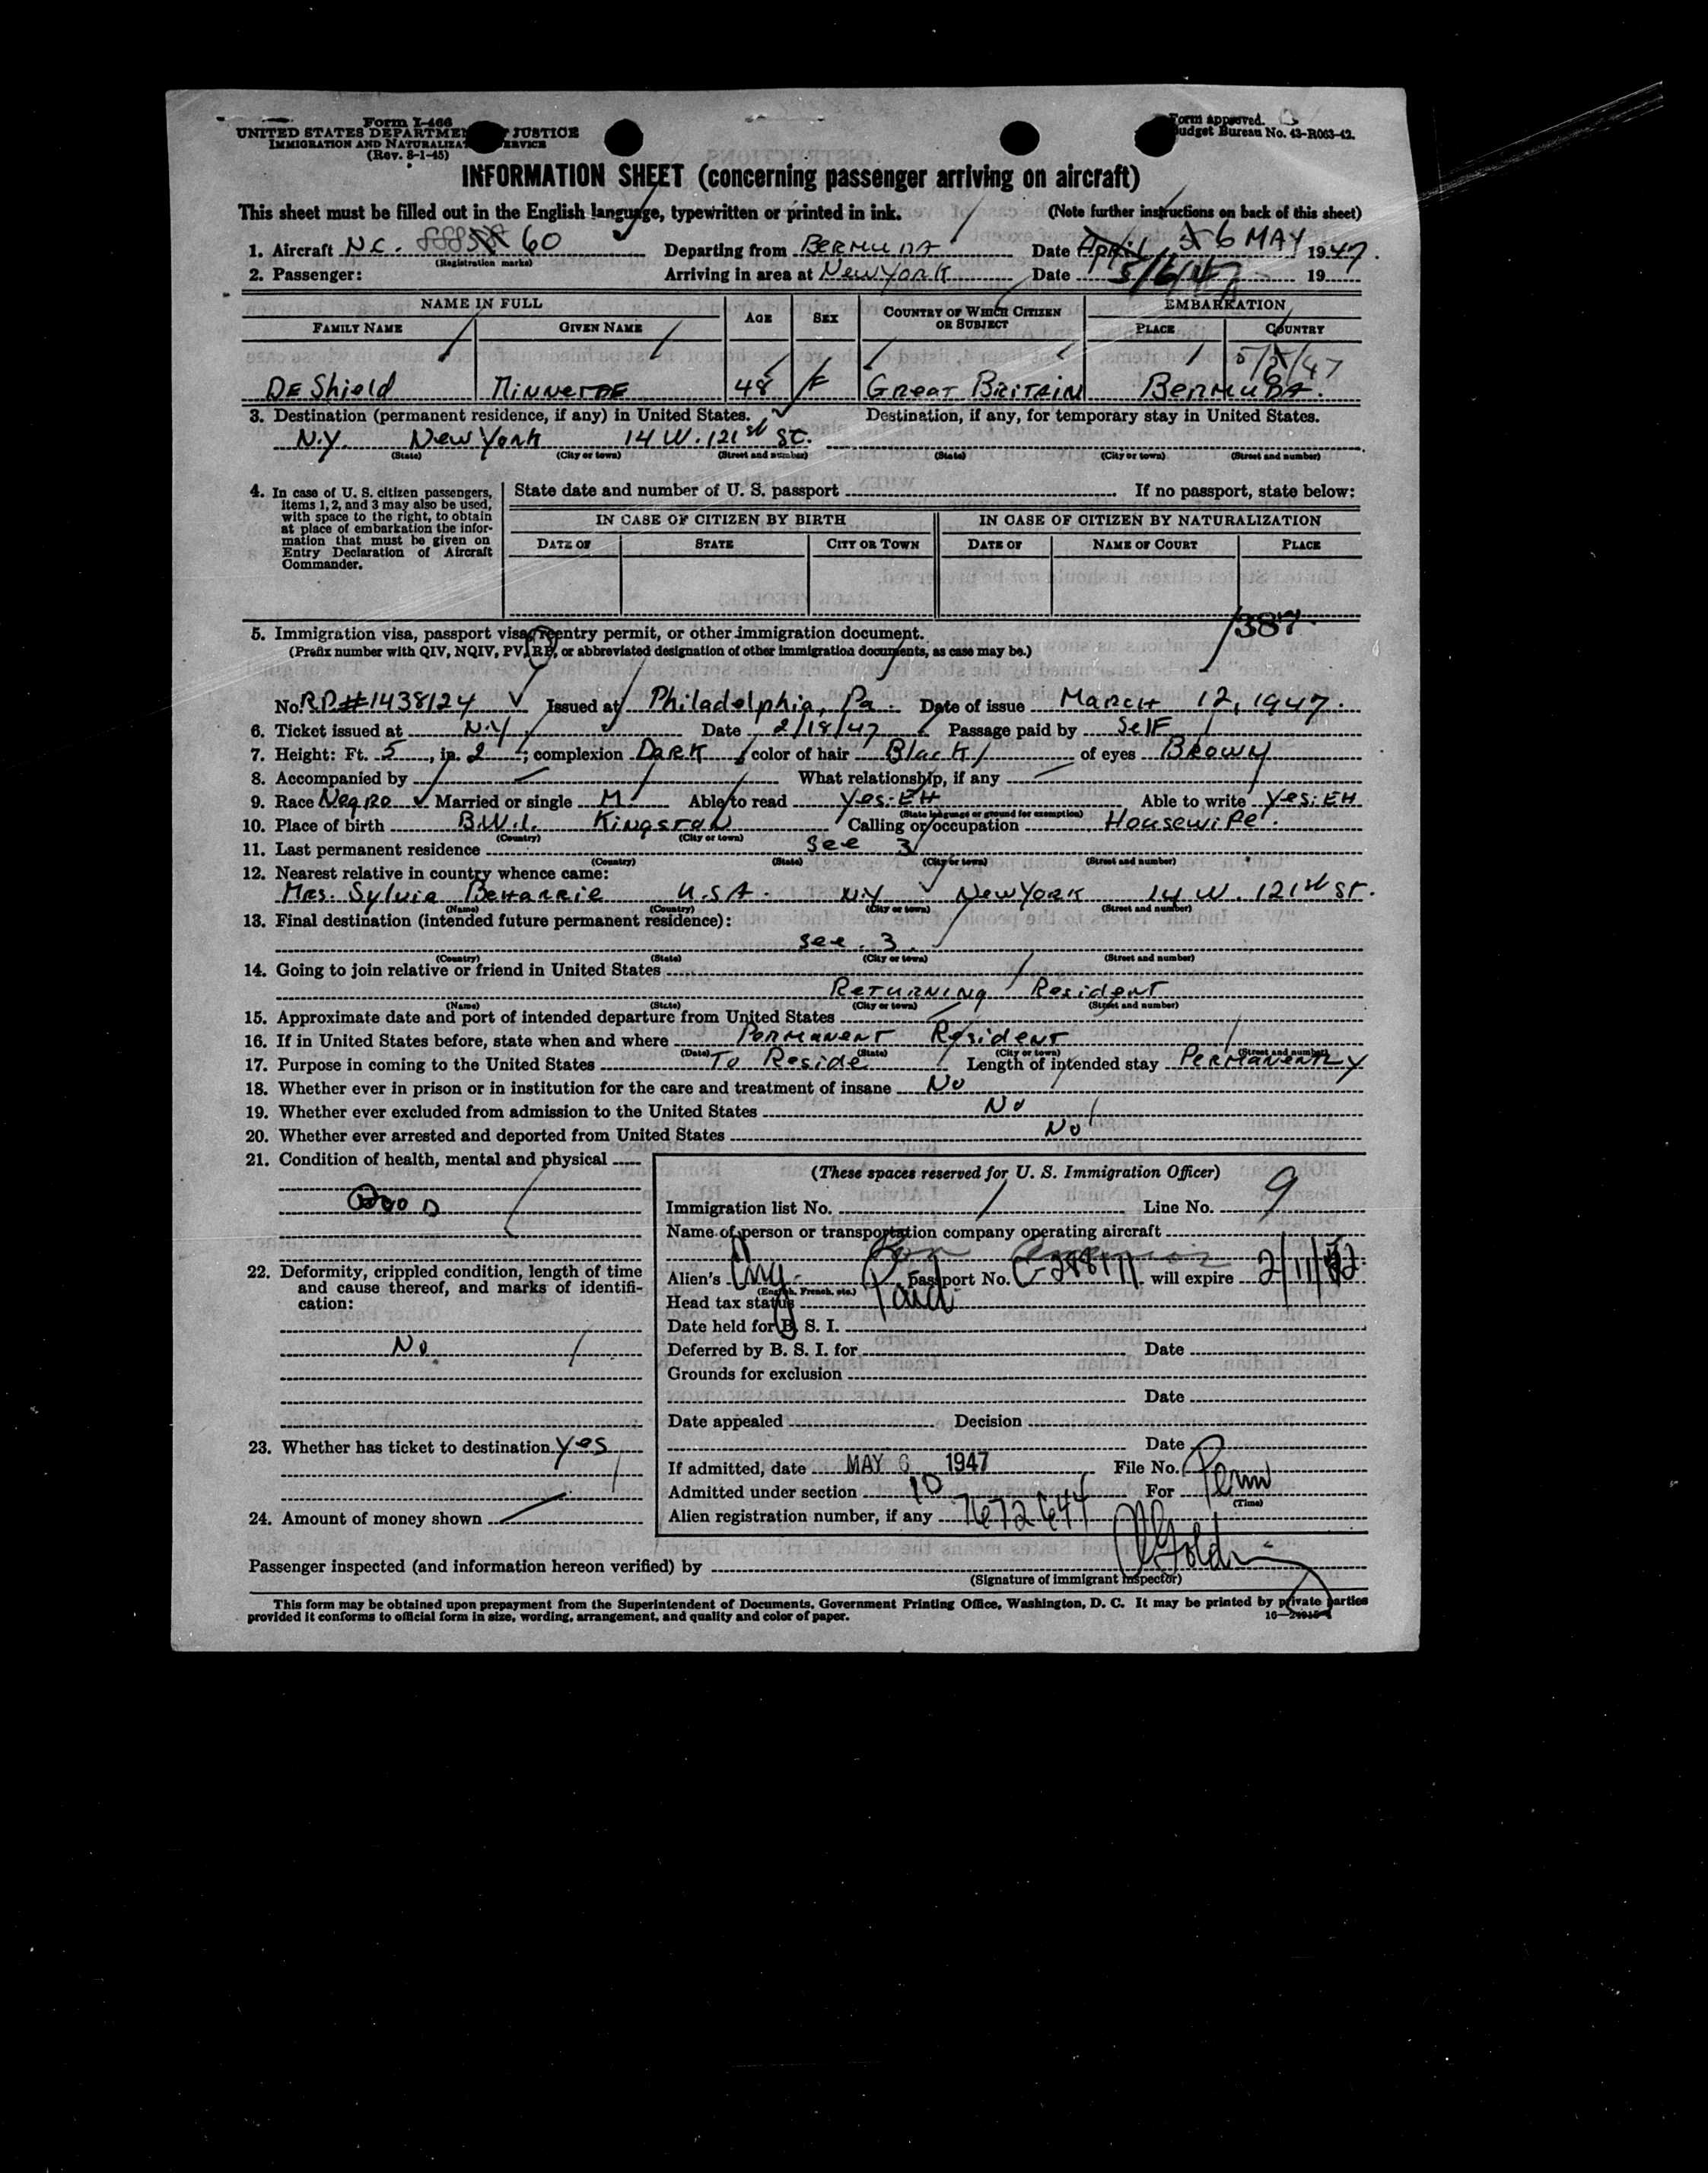 Form I-466
UNITED STATES DEPARTMENT OF JUSTICE
IMMIGRATION AND NATURALIZATION SERVICE
(Rev. 8-1-45)
Form approved.
Budget Bureau No. 43-R063-42.
INFORMATION SHEET (concerning passenger arriving on aircraft)
This sheet must be filled out in the English language, typewritten or printed in ink. (Note further instructions on back of this sheet)
1. Aircraft N.C. 60 Departing from BERMUDA Date April 6 MAY 1947.
(Registration marks)
2. Passenger: Arriving in area at New York Date 5/6/47 19
NAME IN FULL AGE SEX COUNTRY OF WHICH CITIZEN OR SUBJECT EMBARKATION
FAMILY NAME GIVEN NAME PLACE COUNTRY
DE Shield MinneTTE 48 F GREAT BRITAIN BERMUDA.
3. Destination (permanent residence, if any) in United States. Destination, if any, for temporary stay in United States.
N.Y. New York 14 W. 121st St.
(State) (City or town) (Street and number) (State) (City or town) (Street and number)
4. In case of U. S. citizen passengers, items 1, 2, and 3 may also be used, with space to the right, to obtain at place of embarkation the information that must be given on Entry Declaration of Aircraft Commander.
State date and number of U. S. passport If no passport, state below:
IN CASE OF CITIZEN BY BIRTH IN CASE OF CITIZEN BY NATURALIZATION
DATE OF STATE CITY OR TOWN DATE OF NAME OF COURT PLACE
387
5. Immigration visa, passport visa, reentry permit, or other immigration document.
(Prefix number with QIV, NQIV, PV, RP, or abbreviated designation of other immigration documents, as case may be.)
No. RP#1438124 Issued at Philadelphia, Pa. Date of issue MARCH 12, 1947.
6. Ticket issued at N.Y. Date 2/18/47 Passage paid by Self
7. Height: Ft. 5, in. 2; complexion DARK color of hair Black of eyes BROWN
8. Accompanied by — What relationship, if any —
9. Race Negro Married or single M. Able to read Yes. EH Able to write Yes. EH
(State language or ground for exemption)
10. Place of birth B.W.I. Kingston Calling or occupation Housewife.
(Country) (City or town)
11. Last permanent residence See 3
(Country) (State) (City or town) (Street and number)
12. Nearest relative in country whence came:
Mrs. Sylvia Beharrie U.S.A. N.Y. New York 14 W. 121st St.
(Name) (Country) (City or town) (Street and number)
13. Final destination (intended future permanent residence):
See. 3.
(Country) (State) (City or town) (Street and number)
14. Going to join relative or friend in United States
Returning Resident
(Name) (State) (City or town) (Street and number)
15. Approximate date and port of intended departure from United States
16. If in United States before, state when and where Permanent Resident
(Date) (State) (City or town) (Street and number)
17. Purpose in coming to the United States To Reside Length of intended stay Permanently
18. Whether ever in prison or in institution for the care and treatment of insane No
19. Whether ever excluded from admission to the United States No
20. Whether ever arrested and deported from United States No
21. Condition of health, mental and physical
Good
22. Deformity, crippled condition, length of time and cause thereof, and marks of identification:
No.
23. Whether has ticket to destination Yes
24. Amount of money shown —
(These spaces reserved for U. S. Immigration Officer)
Immigration list No. Line No. 9
Name of person or transportation company operating aircraft
Pan American
Alien's Eng. passport No. C-288171 will expire 2/11/52
(English, French, etc.)
Head tax status Paid
Date held for B. S. I.
Deferred by B. S. I. for Date
Grounds for exclusion
Date
Date appealed Decision
Date
If admitted, date MAY 6 1947 File No.
Admitted under section 10 For Perm
(Time)
Alien registration number, if any 7672644
Passenger inspected (and information hereon verified) by
(Signature of immigrant inspector)
This form may be obtained upon prepayment from the Superintendent of Documents, Government Printing Office, Washington, D. C. It may be printed by private parties
provided it conforms to official form in size, wording, arrangement, and quality and color of paper.